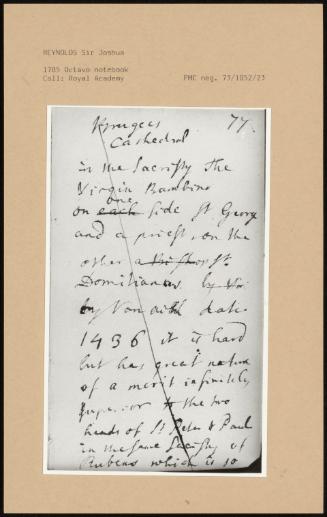 REYNOLDS Sir Joshua
1785 Octavo notebook
Coll: Royal Academy
PMC neg. 73/1052/23
77.
Cathedral
in the Sacristy the
Virgin Bambino
one
on each side St. George
and a priest, on the
other a St.
Domitianus by
by Van date
1436 it is hard
but has great nature
of a merit infinitely
superior to the two
heads of St Peter & Paul
in the same Sacristy of
Rubens which is so